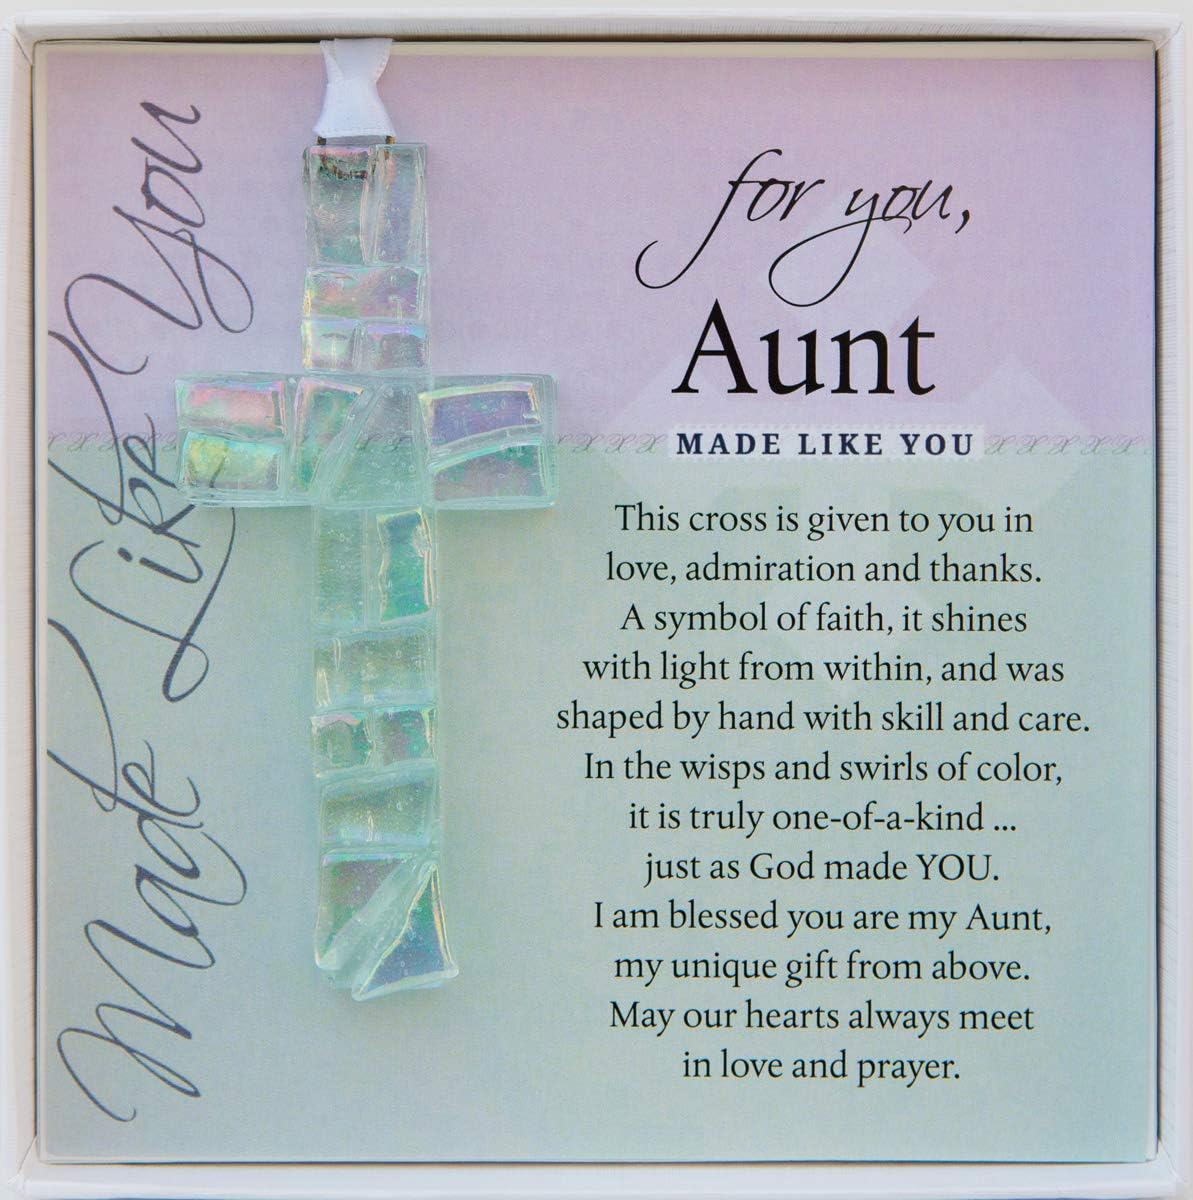 Made Like You
for you,
Aunt
MADE LIKE YOU
This cross is given to you in
love, admiration and thanks.
A symbol of faith, it shines
with light from within, and was
shaped by hand with skill and care.
In the wisps and swirls of color,
it is truly one-of-a-kind ...
just as God made YOU.
I am blessed you are my Aunt,
my unique gift from above.
May our hearts always meet
in love and prayer.